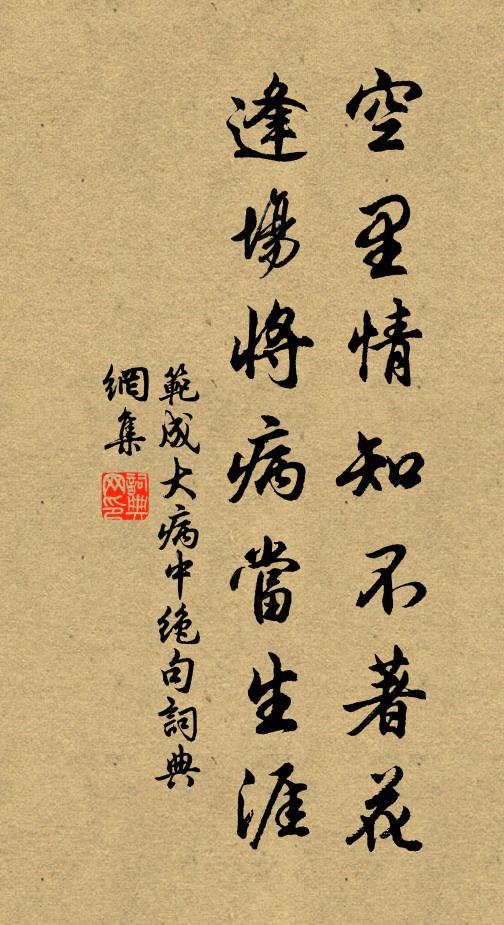 空里情知不著花
逢場將病當生涯
範成大病中绝句詞典
網集
詞典
网印